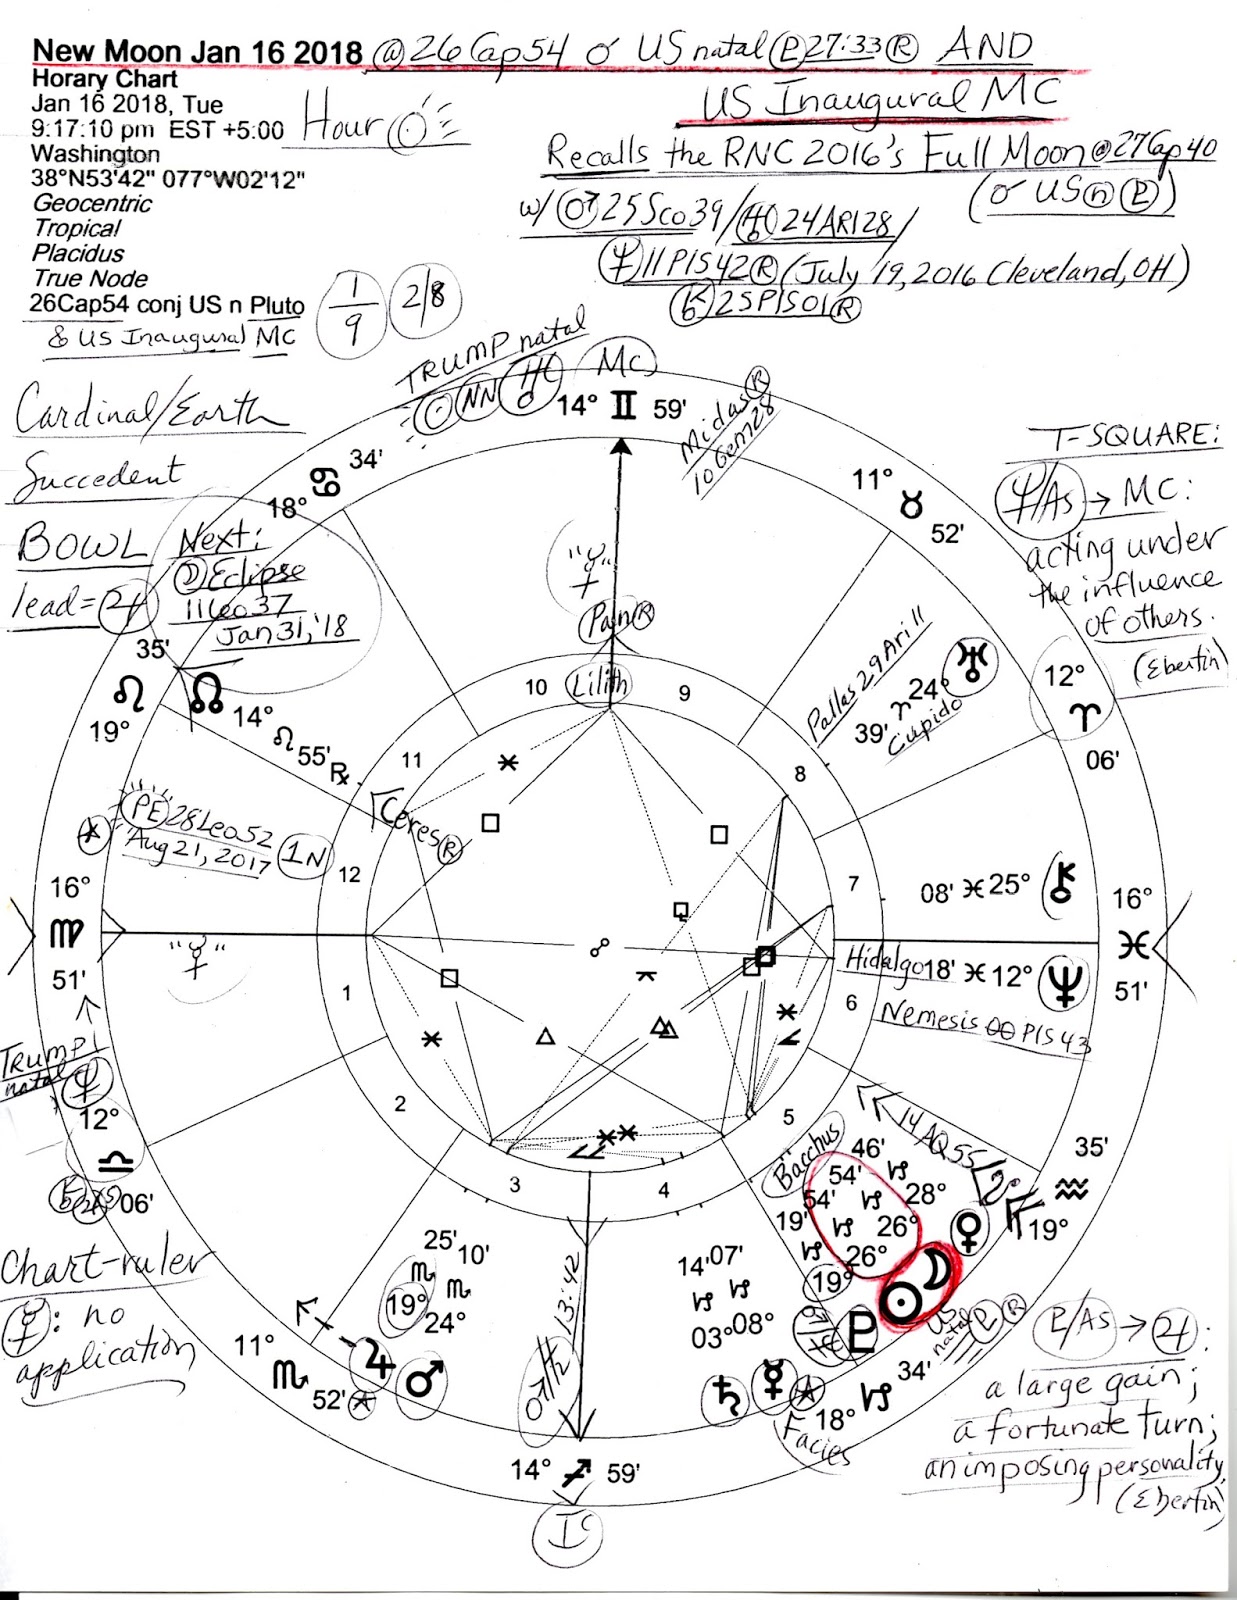 New Moon Jan 16 2018 @ 26Cap54 ☌ US natal ♇ 27:33 ℞ AND
US Inaugural MC
Horary Chart
Jan 16 2018, Tue
9:17:10 pm EST +5:00
Washington
38°N53'42" 077°W02'12"
Geocentric
Tropical
Placidus
True Node
26Cap54 conj US n Pluto
& US Inaugural MC
Hour ☉
1/9
2/8
Recalls the RNC 2016's Full Moon @ 27Cap40
(☌ US n ♇)
w/ ♂ 25Sco39 / ♅ 24ARI28 /
♆ 11PIS42 ℞ (July 19, 2016 Cleveland, OH)
♄ 25PIS01 ℞
Cardinal/Earth
Succedent
BOWL
lead = ♃
Next:
☽ Eclipse
11Leo37
Jan 31, '18
TRUMP natal
☉ NN ♅
MC
14° ♊ 59'
Midas ℞
10Gem28
11° ♉ 52'
T-SQUARE:
♆/As → MC:
acting under
the influence
of others.
(Ebertin)
18° ♋ 34'
"☿"
Pan ℞
Lilith
10
9
11
8
12
7
1
6
2
5
3
4
Pallas 29Ari11
39' ♈ 24° ♅
Cupido
12° ♈ 06'
35' ♌ 19°
☊ 14° ♌ 55' ℞
Ceres ℞
PE 28Leo52
Aug 21, 2017
1N
16° ♍ 51'
"☿"
08' ♓ 25° ⚷
16° ♓ 51'
Hidalgo 18' ♓ 12° ♆
Nemesis 00PIS43
TRUMP
natal ♆
12° ♎ 06'
Chart-ruler
☿: no
application
11° ♏ 52'
25' ♏ 19° ♃
10' ♏ 24° ♂
13:42
14° ♐ 59'
IC
14' ♑ 03° ♄
07' ♑ 08° ☿
Facies
18° ♑ 34'
Bacchus
19' ♑ 19° ♇
54' ♑ 26° ☉
54' ♑ 26° ☽
46' ♑ 28° ♀
US
natal ♇ ℞
14AQ55
35' ♒ 19°
♇/As → ♃:
a large gain;
a fortunate turn;
an imposing personality,
(Ebertin)